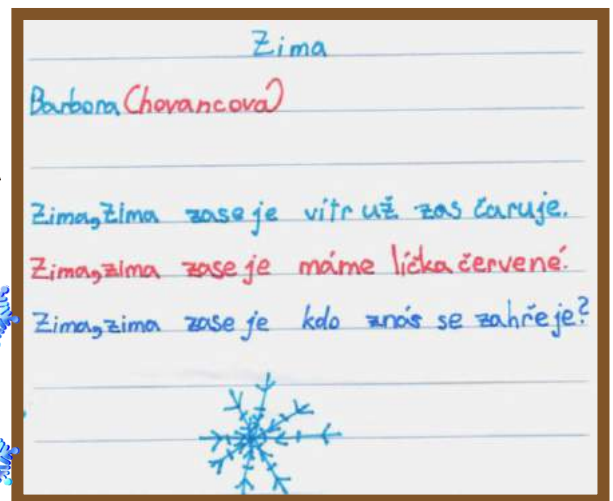 Zima
Barbora Chovancová
Zima, zima zase je vítr už zas čaruje.
Zima, zima zase je máme líčka červené.
Zima, zima zase je kdo znás se zahřeje?